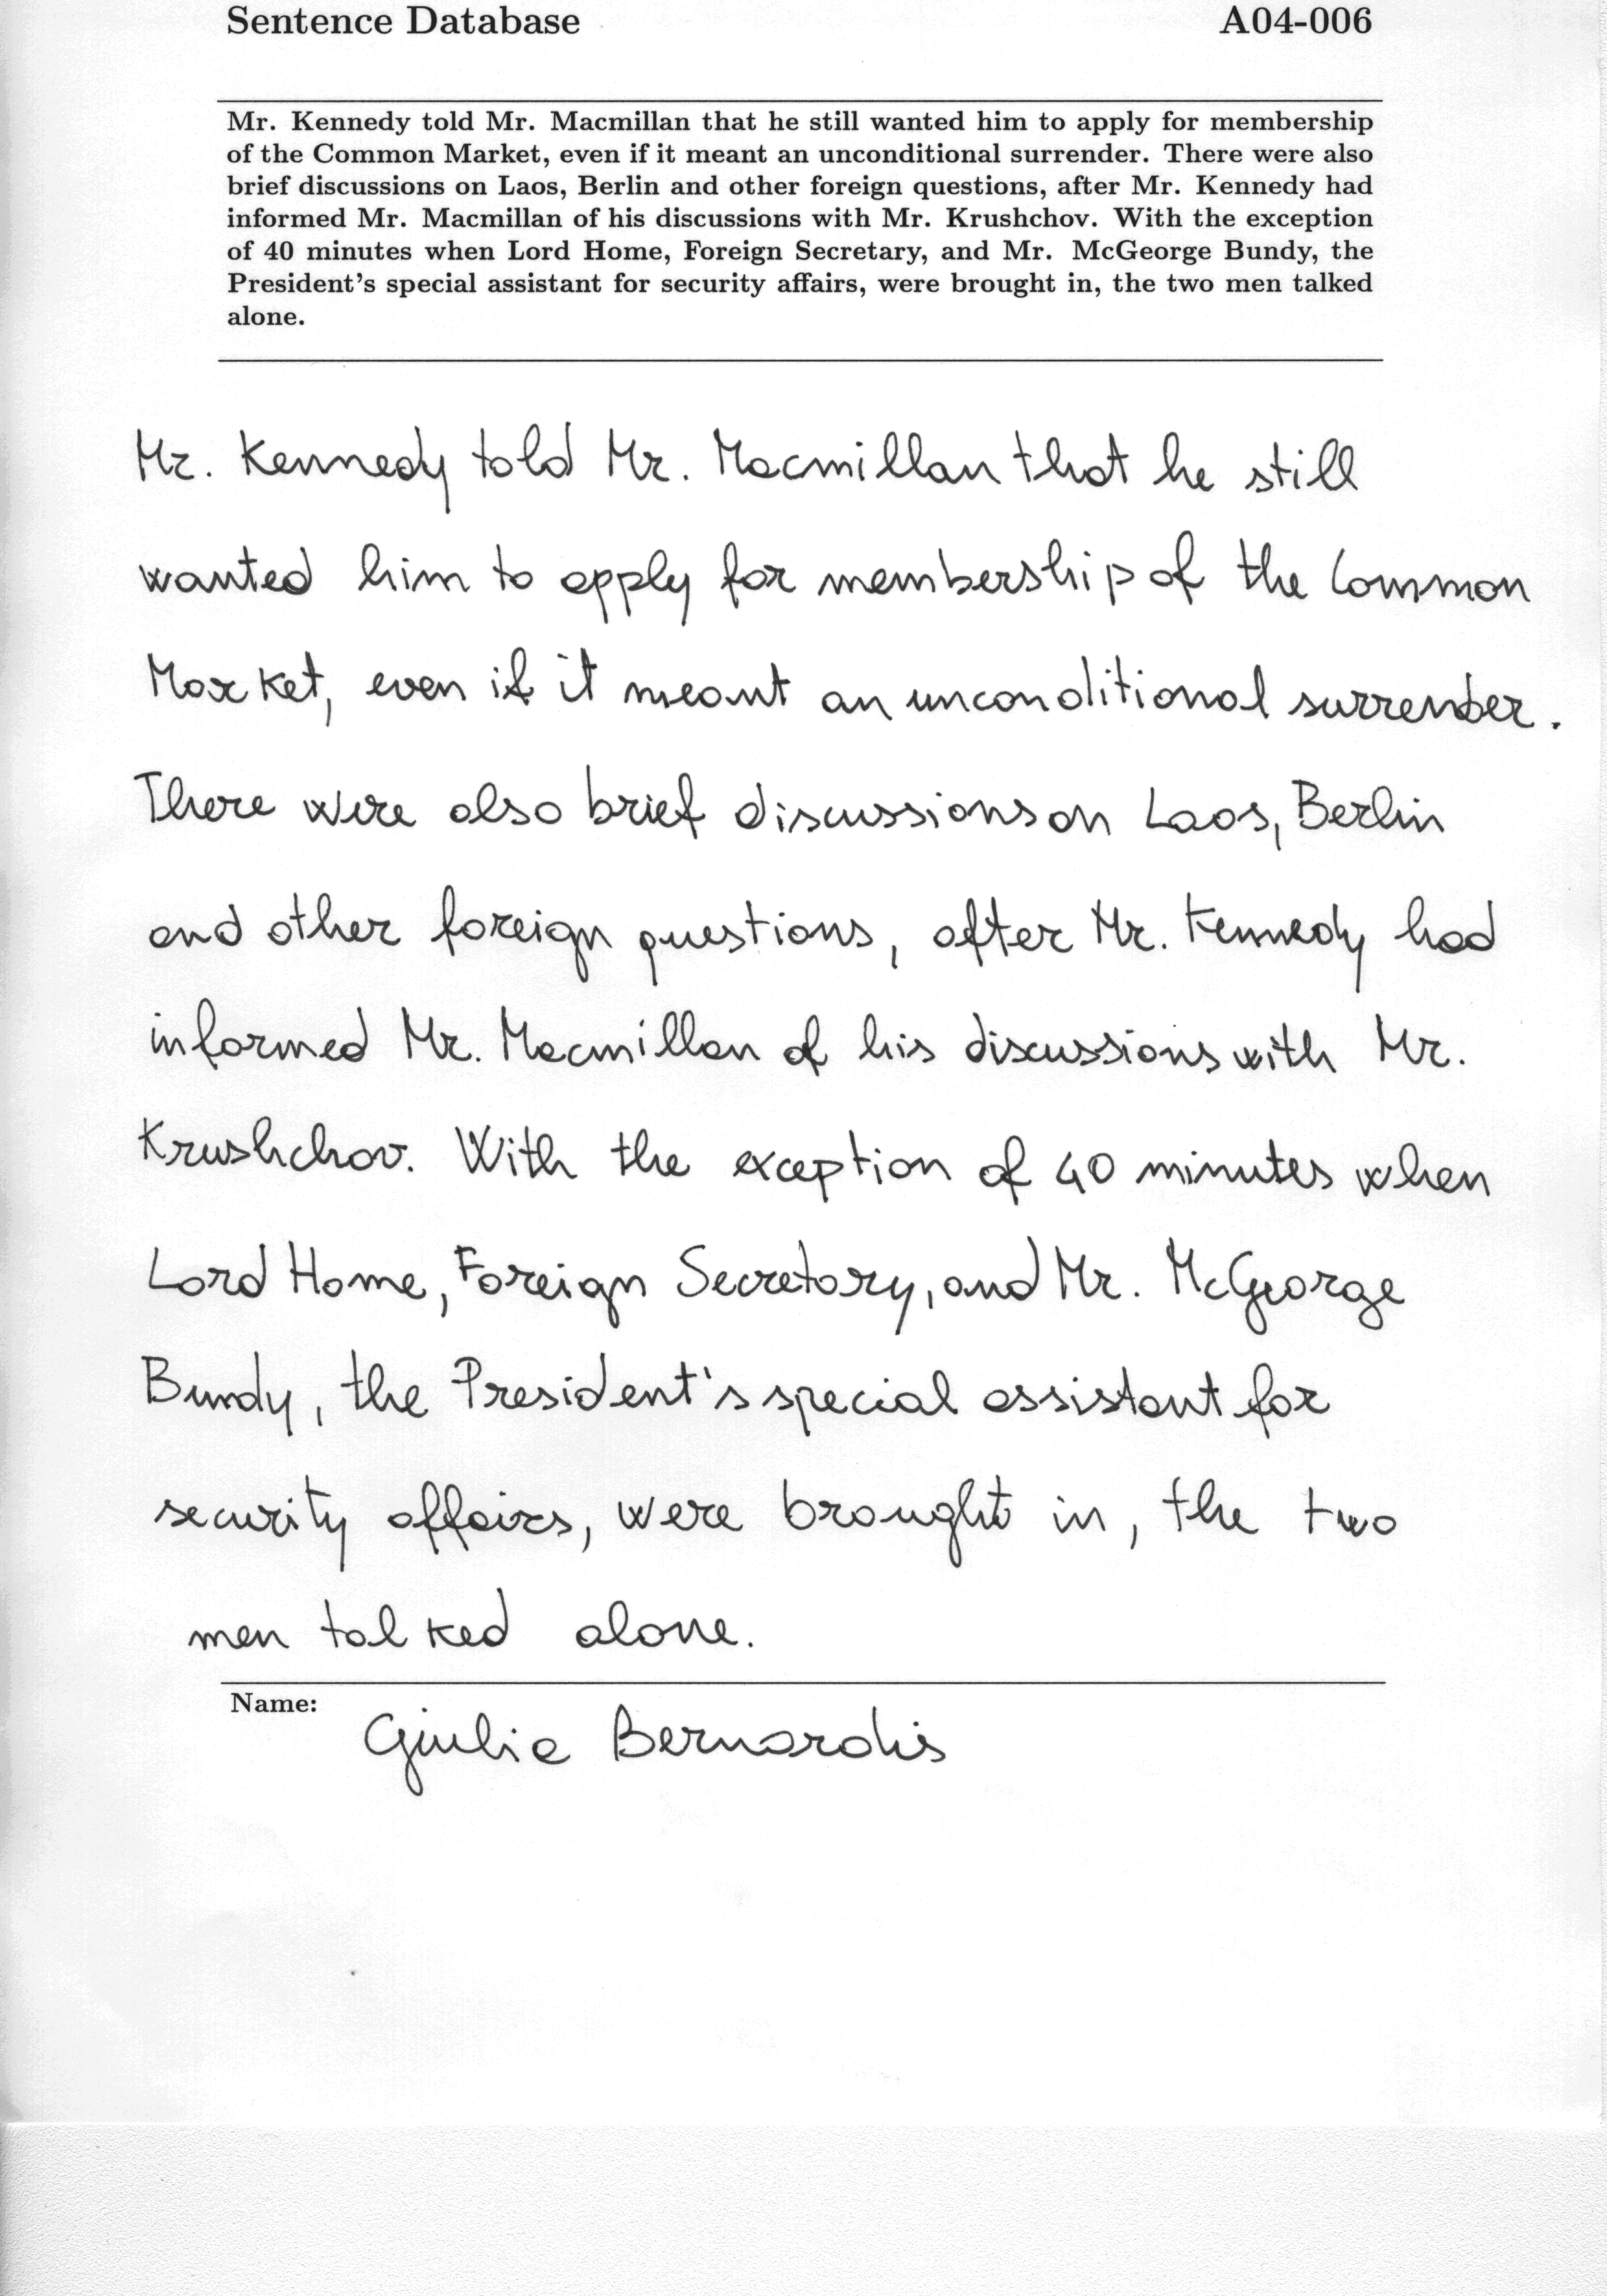 Sentence Database A04-006
Mr. Kennedy told Mr. Macmillan that he still wanted him to apply for membership
of the Common Market, even if it meant an unconditional surrender. There were also
brief discussions on Laos, Berlin and other foreign questions, after Mr. Kennedy had
informed Mr. Macmillan of his discussions with Mr. Krushchov. With the exception
of 40 minutes when Lord Home, Foreign Secretary, and Mr. McGeorge Bundy, the
President's special assistant for security affairs, were brought in, the two men talked
alone.
Mr. Kennedy told Mr. Macmillan that he still
wanted him to apply for membership of the Common
Market, even if it meant an unconditional surrender.
There were also brief discussions on Laos, Berlin
and other foreign questions, after Mr. Kennedy had
informed Mr. Macmillan of his discussions with Mr.
Krushchov. With the exception of 40 minutes when
Lord Home, Foreign Secretary, and Mr. McGeorge
Bundy, the President's special assistant for
security affairs, were brought in, the two
men talked alone.
Name: Giulia Bernardis